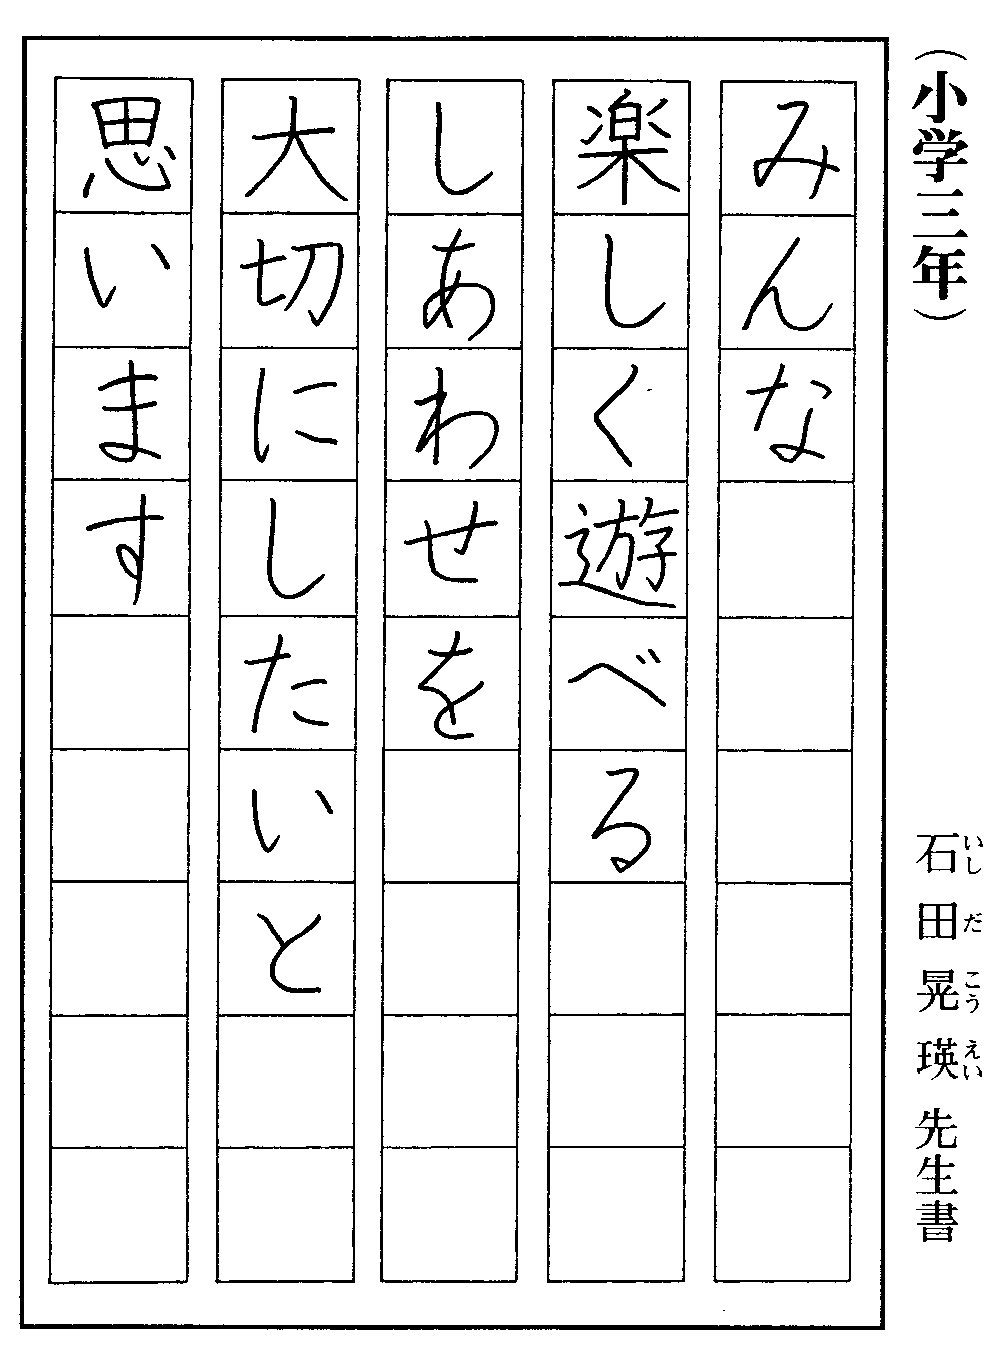 （小学三年）
石田晃瑛先生書
いしだこうえい
みんな
楽しく遊べる
しあわせを
大切にしたいと
思います